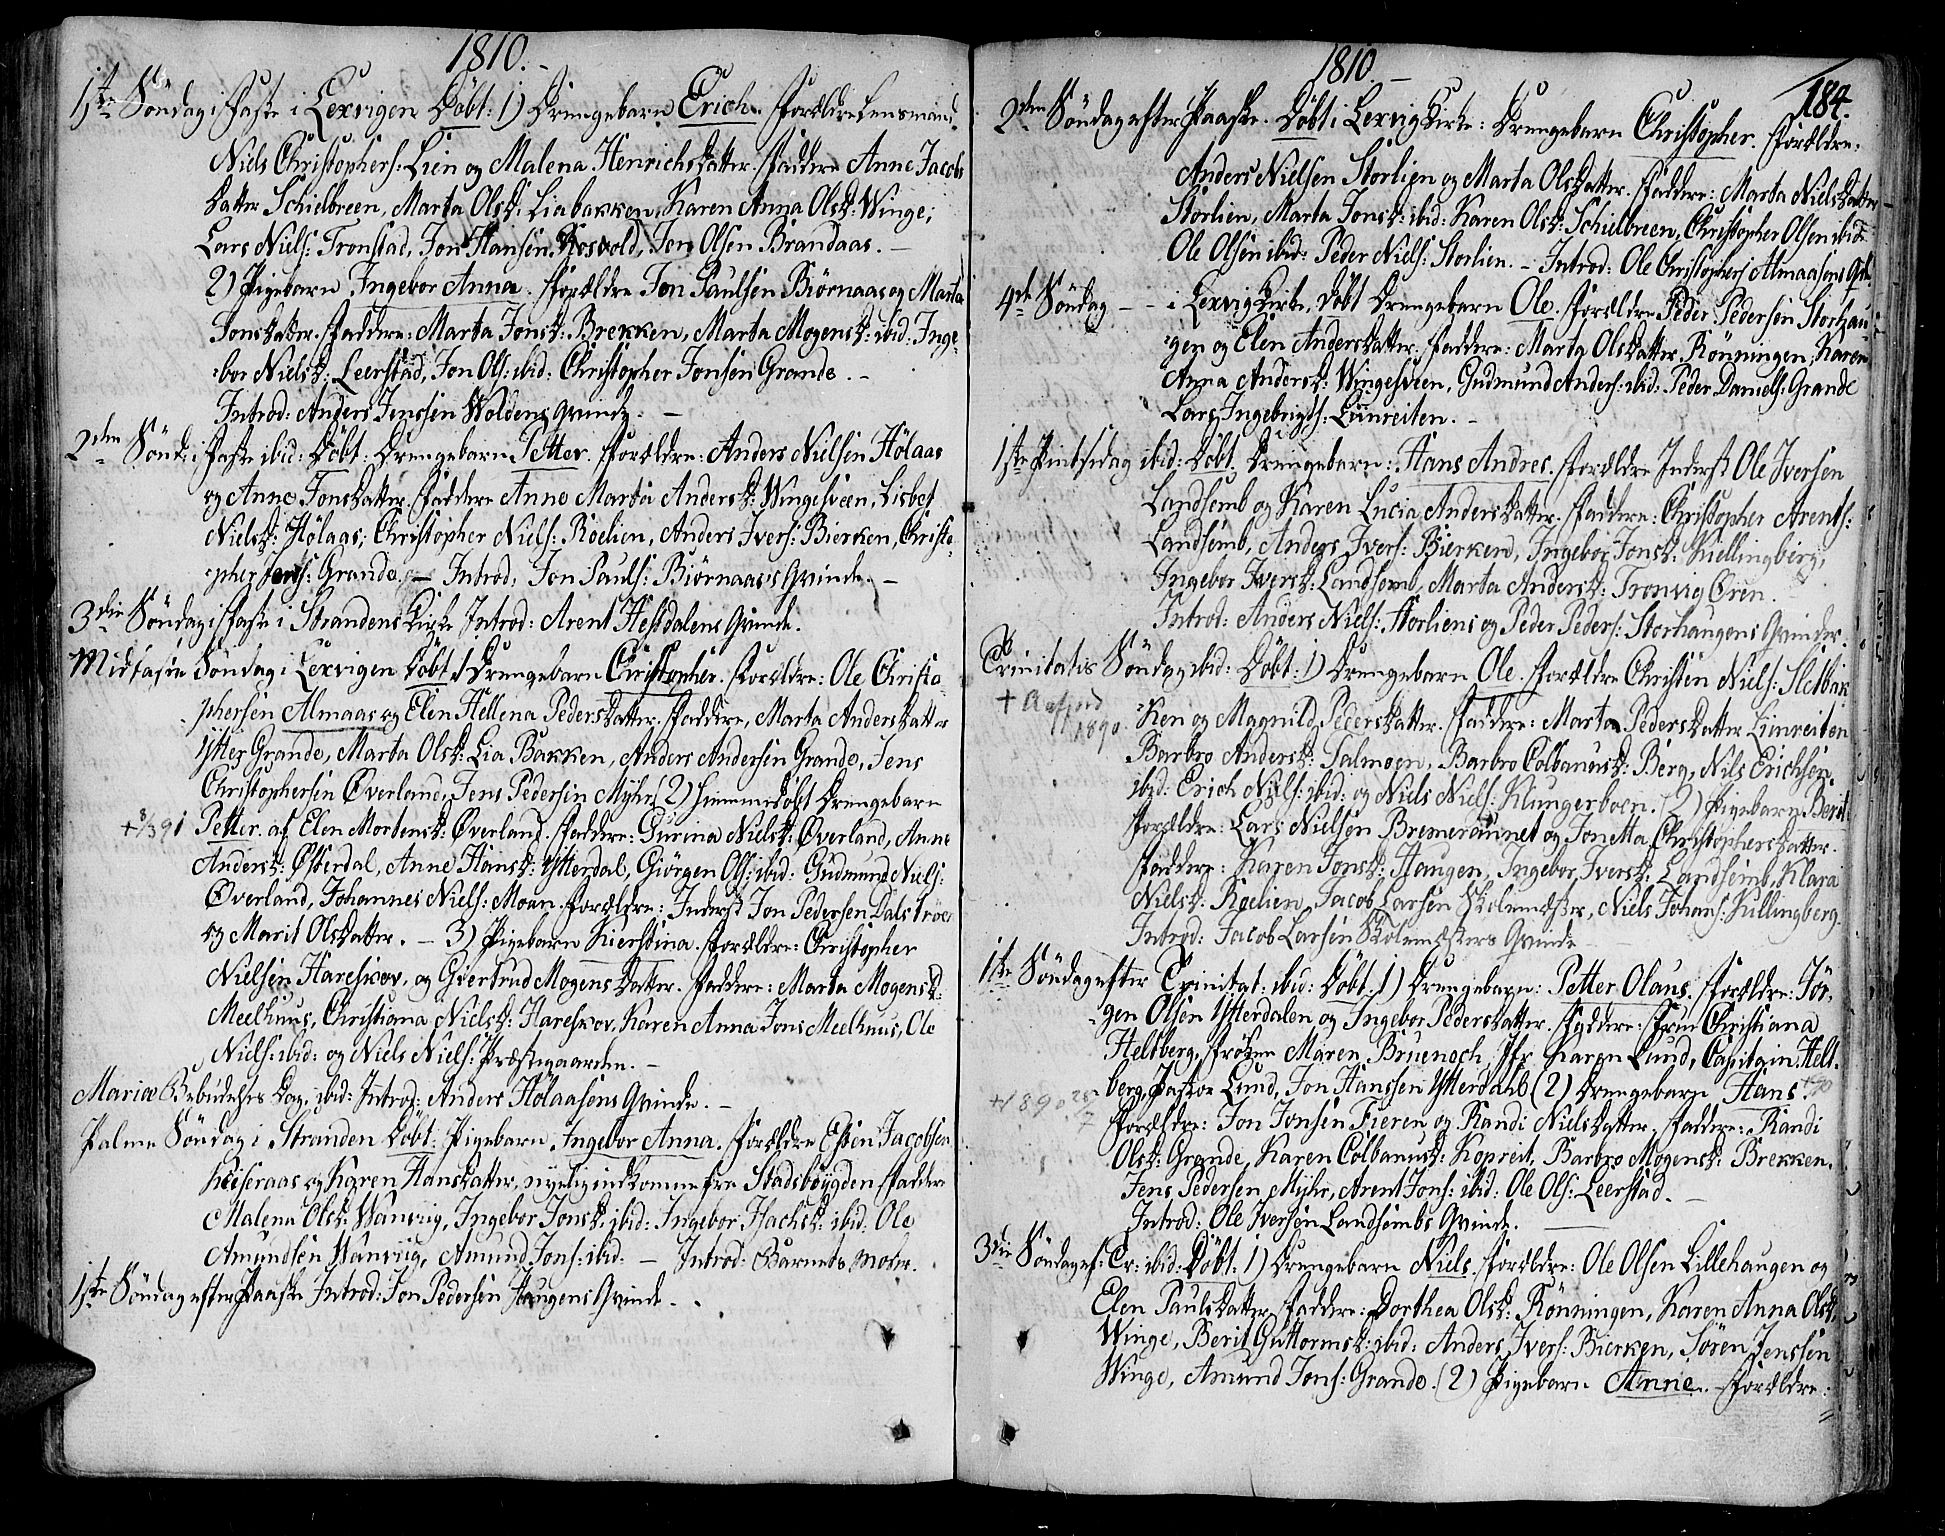 1810.
1ste Söndag i Faste i Lexvigen Döbt: 1) Drengebarn Erich. Forældre Lensmand
Niels Christophers: Lien og Malena Henrichsdatter. Faddere Anne Jacobs
datter Schielbreen, Marta Olsd: Liabakken, Karen Anna Olsd: Winge,
Lars Niels: Tronstad, Jon Hansen Kosvold, Jon Olsen Brandaas. –
2) Pigebarn Ingebor Anna. Forældre Jon Paulsen Biörnaas og Marta
Jonsdatter. Faddere: Marta Jonsd: Brekken, Marta Mogensd: ibid: Inge-
bor Nielsd: Leerstad, Jon Ols: ibid: Christopher Jonsen Grande. –
Introd: Anders Jenssen Woldens Qvinde. –
2den Sönd: i Faste ibid: Döbt: Drengebarn Petter. Forældre: Anders Nielsen Hölaas
og Anne Jonsdatter. Faddere Anne Marta Andersd: Wingesveen, Lisbet
Nielsd: Hölaas, Christopher Niels: Roelien, Anders Ivers: Bierken, Christo-
pher Jens: Grande. – Introd: Jon Pauls: Biörnaases Qvinde. –
3die Söndag i Faste i Strandens Kirke Introd: Arent Hesdalens Qvinde.
Midfaste Söndag i Lexvigen Döbt 1 Drengebarn Christopher. Forældre: Ole Christo-
phersen Almaas og Elen Hellena Pedersdatter. Faddere, Marta Andersdatter
ytter Grande, Marta Olsd: Lia Bakken, Anders Andersen Grande, Jens
Christophersen Överland, Jens Pedersen Myhr. (2) Hiemmedöbt Drengebarn
+ 8/3 91 Petter af Elen Mortensd: Överland. Faddere: Gurina Nielsd: Överland, Anne
Andersd: Österdal, Anne Hansd: Ytterdal, Giörgen Ols: ibid: Gudmund Niels:
Överland, Johannes Niels: Moan. Forældre: Inderst Jon Pedersen Dalströe
og Marit Olsdatter. – 3) Pigebarn Kierstina. Forældre: Christopher
Nielsen Hareskov, og Giertrud Mogensdatter. Faddere: Marta Mogensd:
Meelhuus, Christiana Nielsd: Hareskov, Karen Anna Jons Meelhuus, Ole
Niels: ibid: og Niels Niels: Præstegaarden. –
Mariæ Bebudelses Dag, ibid: Introd: Anders Hölaasens Qvinde. –
Palme Söndag i Stranden Döbt: Pigebarn Ingebor Anna. Forældre Esten Jacobsen
Keiseraas og Karen Hansdatter, nyelig indkomne fra Stadsböygden. Faddere
Malena Olsd: Wanvig, Ingebor Jonsd: ibid: Ingebor Isachsd: ibid: Ole
Amundsen Wanviig, Amund Jons: ibid: – Introd: Barnets Moder.
1ste Söndag efter Paaske Introd: Jon Pedersen Haugens Qvinde.
1810. –
184.
2den Söndag efter Paaske. Döbt i Lexvig Kirke: Drengebarn Christopher. Forældre:
Anders Nielsen Storlien og Marta Olsdatter. Faddere: Marta Nielsdatter
Storlien, Marta Jonsd: ibid: Karen Olsd: Schielbreen, Christopher Olsen ibid:
Ole Olsen ibid: Peder Niels: Storlien. – Introd: Ole Christophers: Almaasens Qv:
4de Söndag – – i Lexvig Kirke, döbt Drengebarn Ole. Forældre Peder Pedersen Storhau-
gen og Elen Andersdatter. Faddere: Marta Olsdatter Rönningen, Karen
Anna Andersd: Wingesveen, Gudmund Anders: ibid: Peder Daniels: Grande
Lars Ingebrigts: Linreiten. –
1ste Pintsedag ibid: Döbt: Drengebarn: Hans Andres. Forældre Inderst Ole Iversen
Landsemb og Karen Lucia Andersdatter. Faddere: Christopher Arents:
Landsemb, Anders Ivers: Bierken, Ingebor Jonsd: Killingberg,
Ingebor Iversd: Landsemb, Marta Andersd: Tronvig Ören.
Introd: Anders Niels: Storliens og Peder Peders: Storhaugens Qvinder.
Trinitatis Söndag ibid: Döbt: 1) Drengebarn Ole. Forældre Christen Niels: Sletbak-
+ 1890. ken og Magnild Pedersdatter. Faddere: Marta Pedersdatter Linreiten
Barbro Andersd: Talmoen, Barbro Colbanusd: Berg, Nils Erichsen
ibid: Erich Niels: ibid: og Niels Niels: Klungerboen. (2) Pigebarn Berit
Forældre: Lars Nielsen Bremeraunet og Jonetta Christophersdatter.
Faddere: Karen Jonsd: Haugen, Ingebor Iversd: Landsemb, Klara
Nielsd: Roelien, Jacob Larsen Skolemester, Niels Johans: Killingberg.
Introd: Jacob Larsen Skolemesters Qvinde
1ste Söndag efter Trinitat: ibid: Döbt. 1) Drengebarn: Petter Olaus. Forældre: Jör-
gen Olsen Ytterdalen og Ingebor Pedersdatter. Faddere: Frue Christiana
Heltberg, Fröken Maren Bruenoch, Jfr Karen Lund, Capitain Helt-
berg, Pastor Lund, Jon Hanssen Ytterdahl (2) Drengebarn Hans.
+1890 28/7 Forældre: Jon Jonsen Fieren og Randi Nielsdatter. Faddere: Randi
Olsd: Grande, Karen Colbanusd: Kopreit, Barbro Mogensd: Brekken,
Jens Pedersen Myhr, Arent Jons: ibid: Ole Ols: Leerstad. –
Introd: Ole Iversen Landsembs Qvinde.
3die Söndag ef: Tr: ibid: Döbt: 1) Drengebarn Niels. Forældre: Ole Olsen Lillehaugen og
Elen Paulsdatter. Faddere: Dorthea Olsd: Rönningen, Karen Anna Olsd.
Winge, Berit Guttormsd: ibid: Anders Ivers: Bierken, Sören Jenssen
Winge, Amund Jons: Grande. (2) Pigebarn Anne. Forældre: